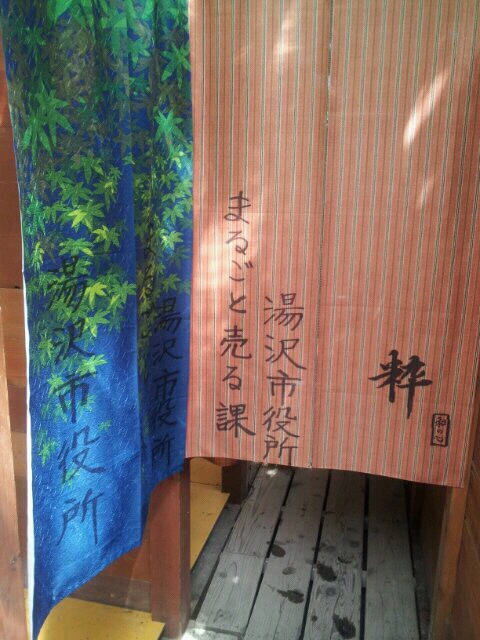 粋
和の心
湯沢市役所
まるごと売る課
湯沢市役所
湯沢市役所